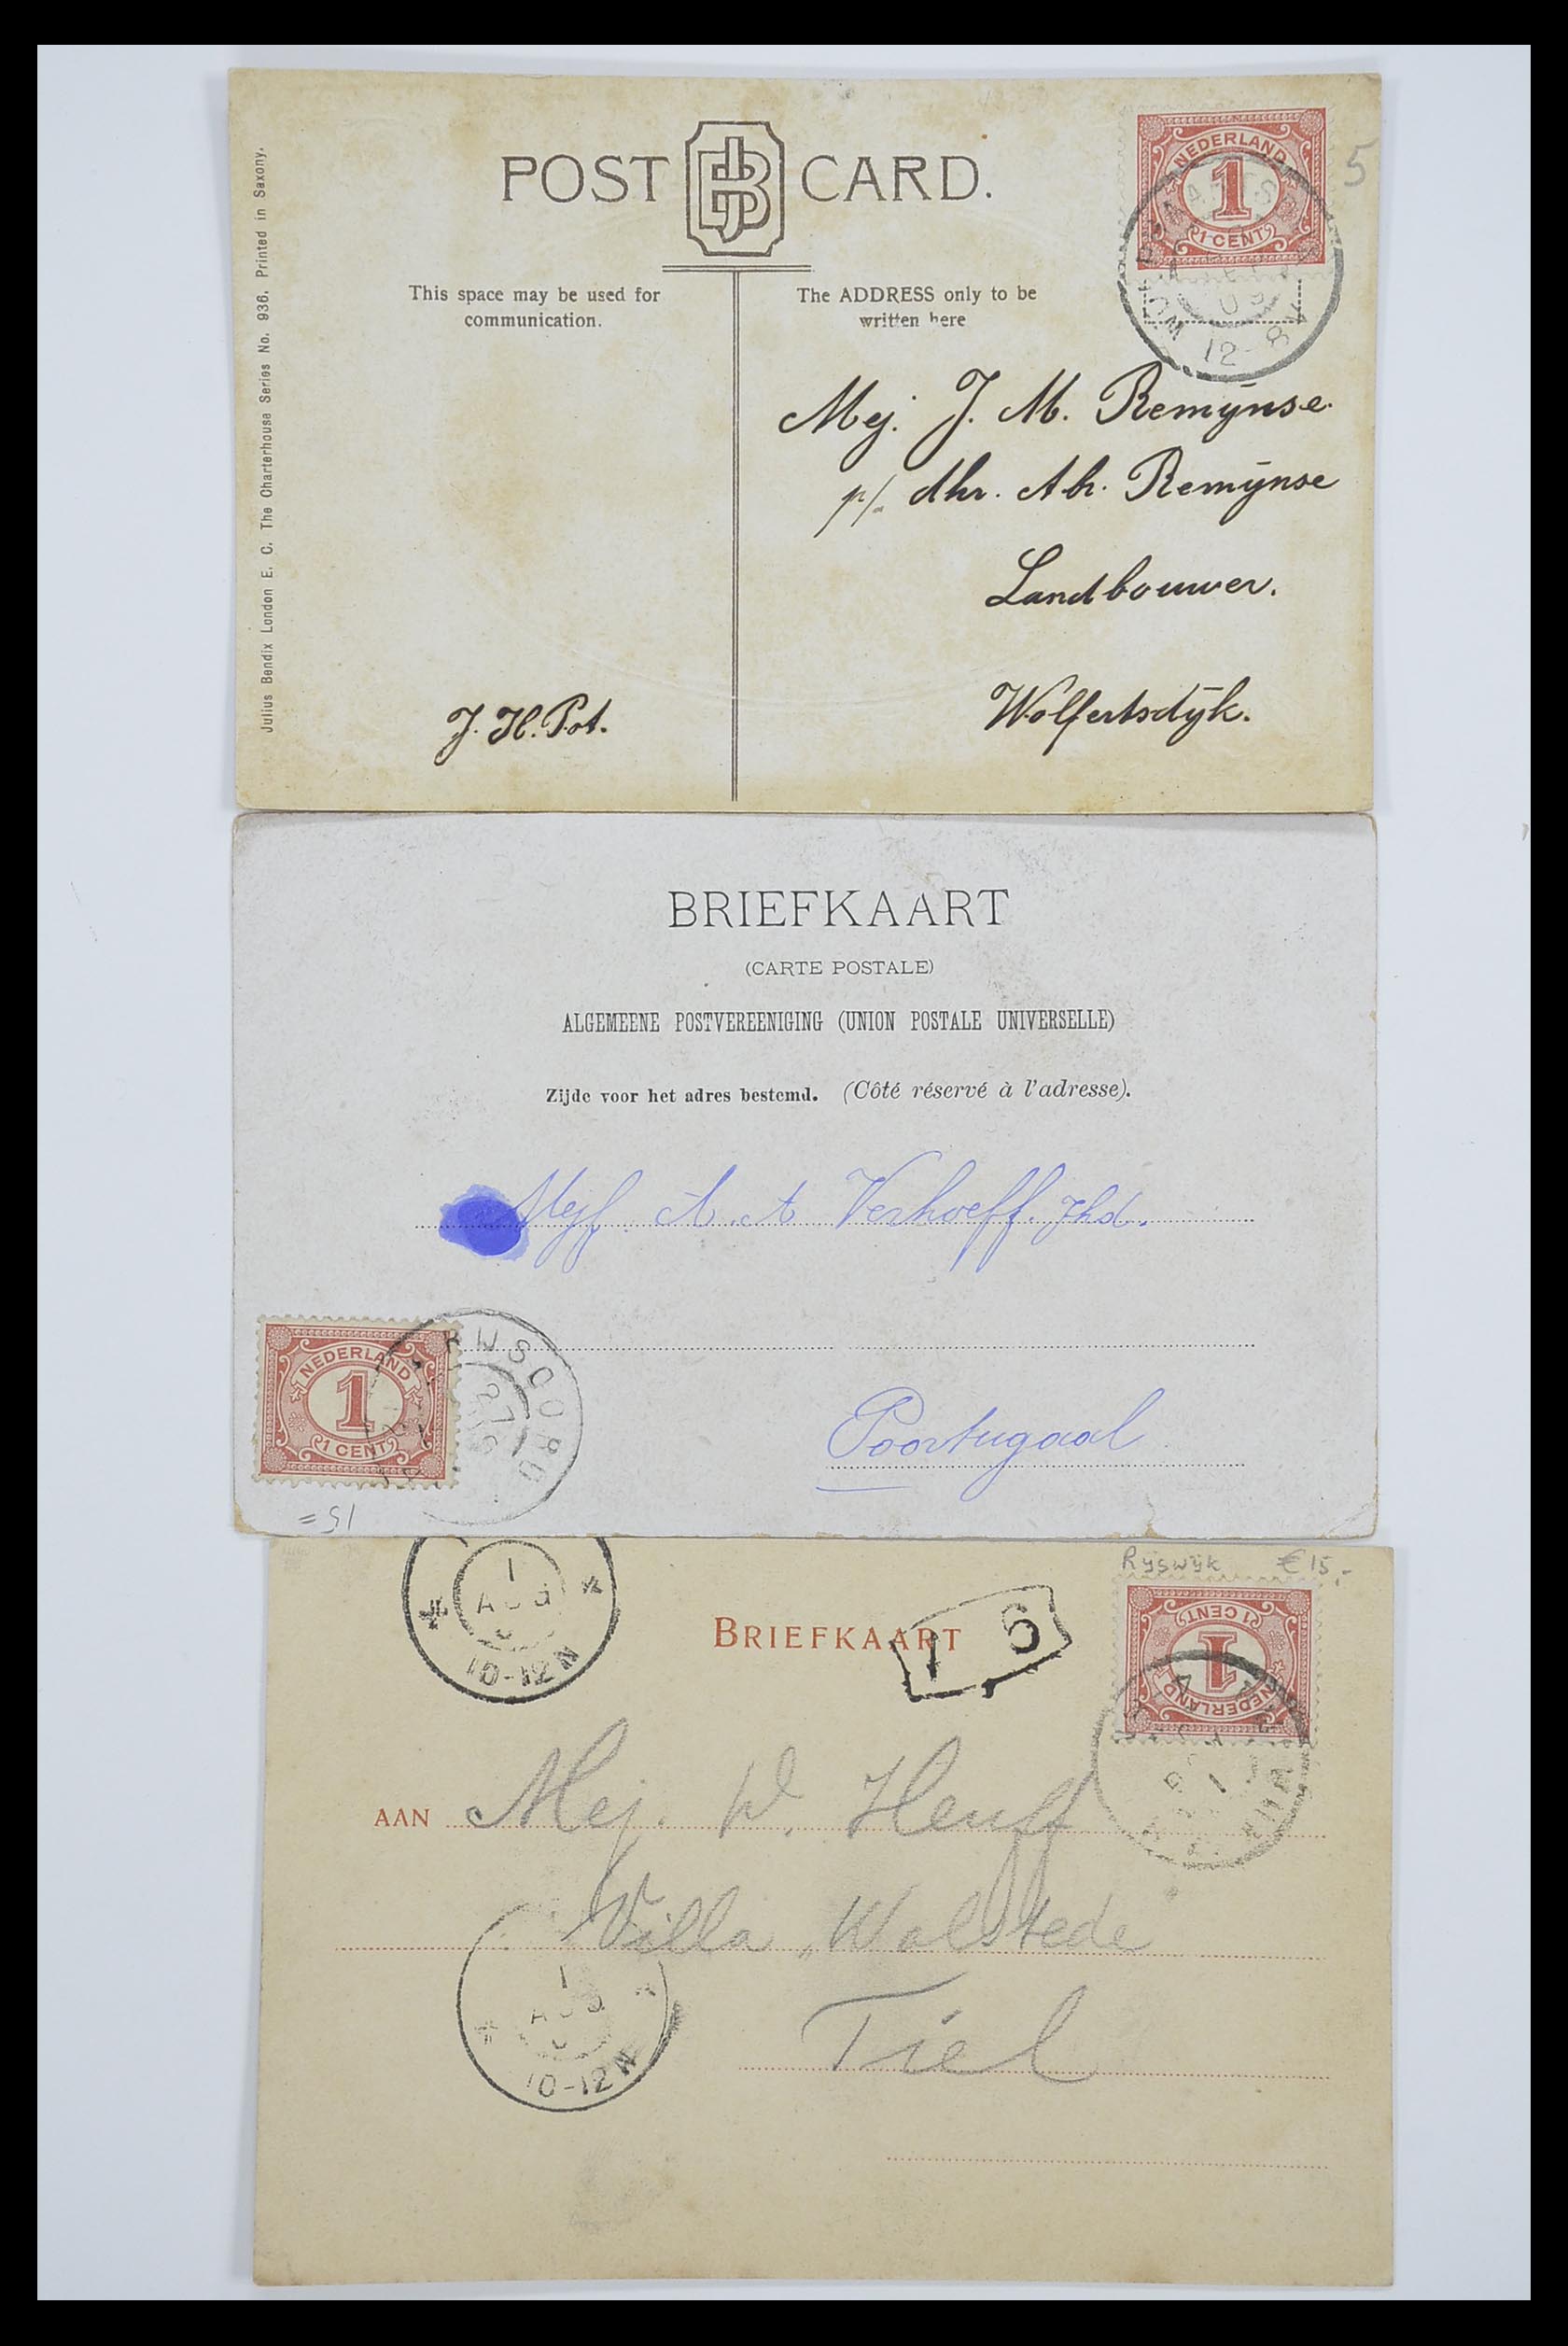 POST BJ CARD.
Julius Bendix London E. C. The Charterhouse Series No. 936. Printed in Saxony.
NEDERLAND
1
1 CENT
5
12-8V
This space may be used for
communication.
The ADDRESS only to be
written here
Mej. J. M. Remijnse.
p/. dhr. Ab. Remijnse
Landbouwer.
Wolfertsdijk.
J. H. Pot.
BRIEFKAART
(CARTE POSTALE)
ALGEMEENE POSTVEREENIGING (UNION POSTALE UNIVERSELLE)
Zijde voor het adres bestemd. (Côté réservé à l'adresse).
Mejf A. A Verhoeff. Jhd.
NEDERLAND
1
1 CENT
RIJSOORD
27
Poortugaal
15 =
Rijswijk € 15,-
1
AUG
10-12N
BRIEFKAART
1 6
NEDERLAND
1
1 CENT
AAN Mej. W. Heuff
Villa „Walstede"
1
AUG
10-12N
Tiel